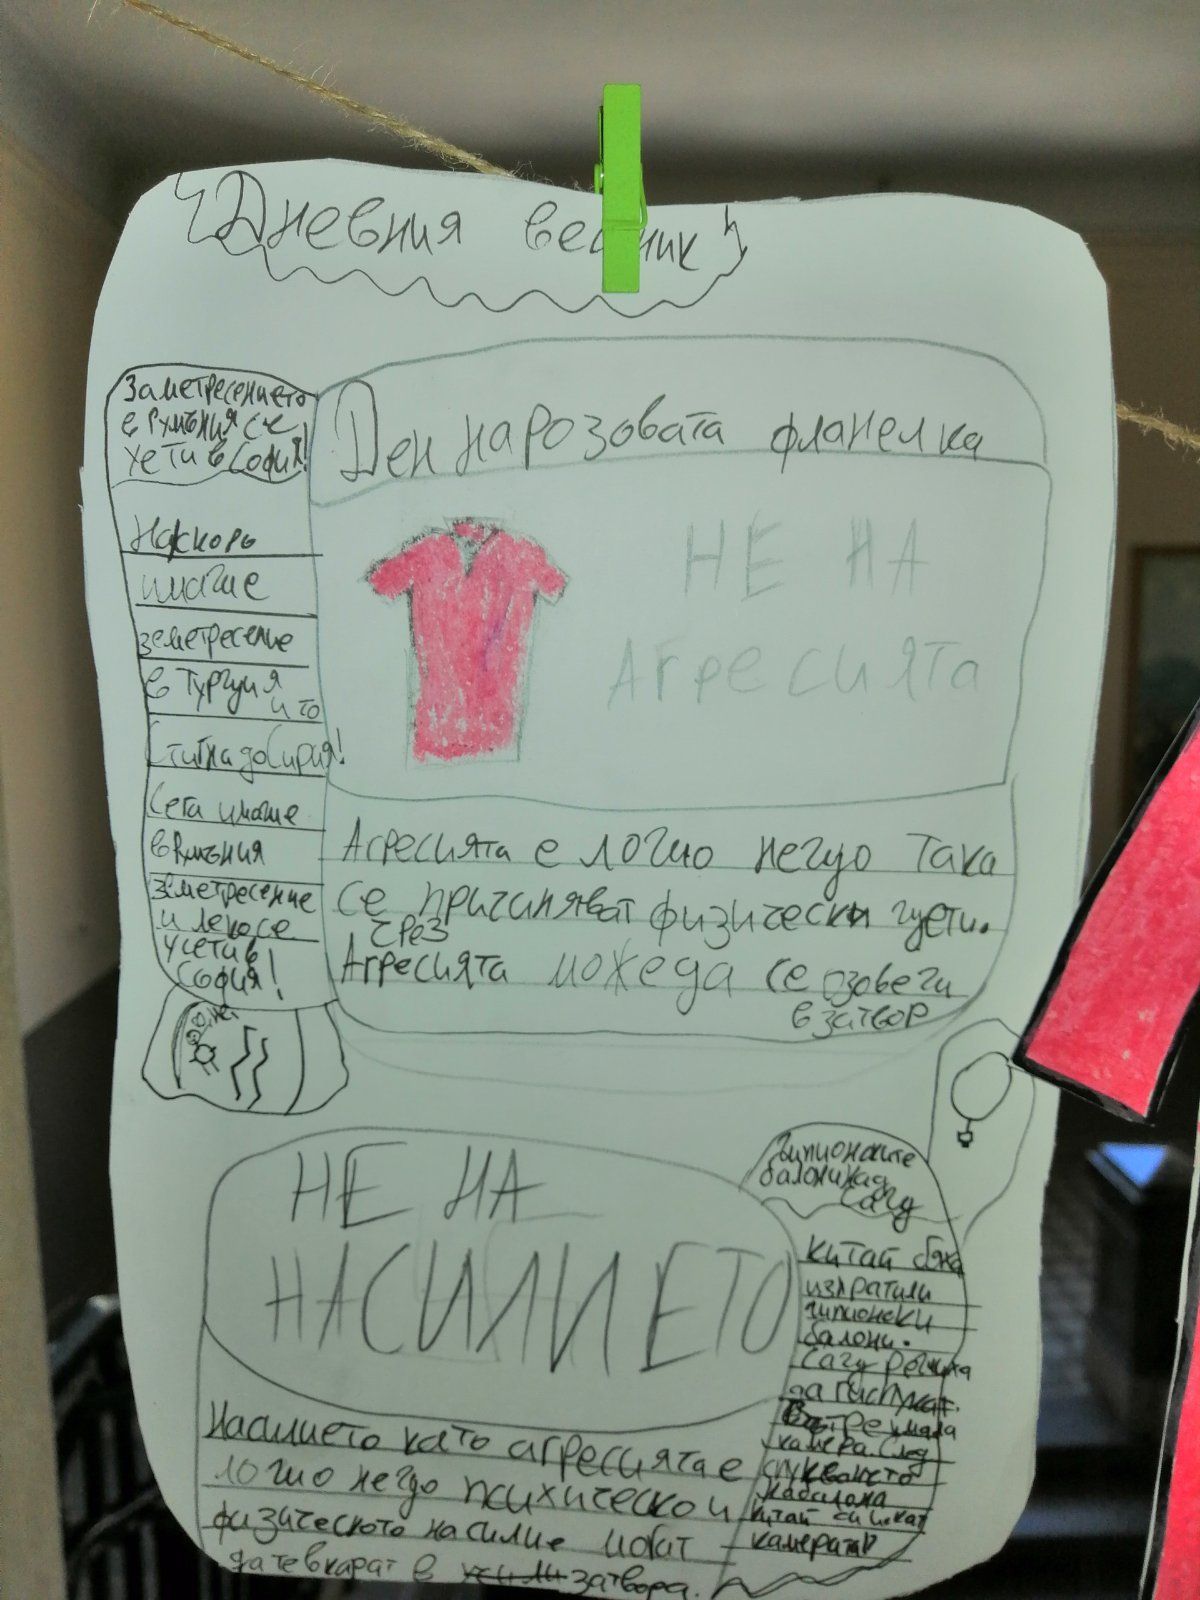 Дневния весник
Заметресението
в Румъния се
усети в София!
Наскоро
имаше
земетресение
в Турция
и то
стигна до Сирия!
Сега имаше
в Румъния
земетресение
и леко се
усети в
София!
Ден на розовата фланелка
НЕ НА
Агресията
Агресията е лошо нещо така
се причиняват физически щети.
чрез
Агресията може да се озовеш
в затвор
НЕ НА
НАСИЛИЕТО
Насилието като агресията е
лошо нещо психическо и
физическото насилие могат
да те вкарат в затвора.
Шпионските
балони над
САЩ
Китай бяха
изпратили
шпионски
балони.
САЩ решиха
да ги спукат.
имала
камера. След
спукването
на балона
Китай си искат
камерата!